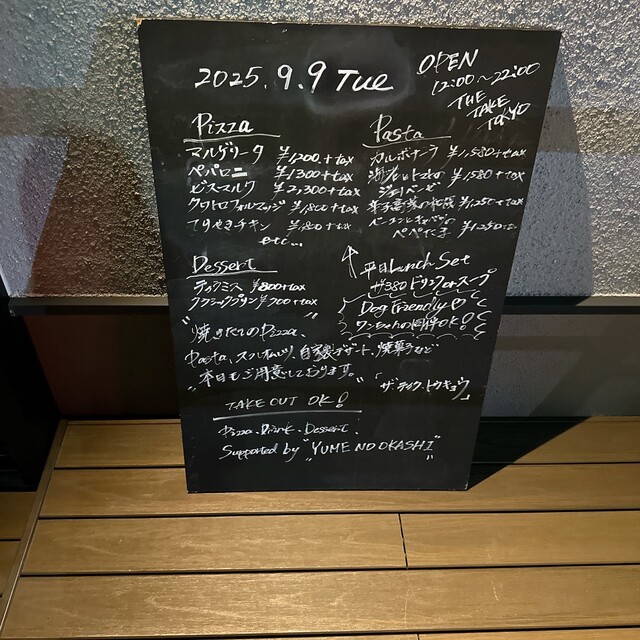 2025.9.9 Tue
OPEN
12:00~22:00
THE
TAKE
TOKYO
Pizza
マルゲリータ ¥1200+tax
ペパロニ ¥1300+tax
ビスマルク ¥2,300+tax
クワトロフォルマッジ ¥1800+tax
てりやきチキン ¥1800+tax
etc...
Pasta
カルボナーラ ¥1,580+tax
¥1580+tax
ジェノベーゼ
¥1250+tax
ペペたま ¥1250
Dessert
ティラミス ¥800+tax
クラシックプリン ¥700+tax
↑平日Lunch Set
+¥380ドリンクorスープ
Dog Friendly♡
ワンちゃん同伴OK!
"焼きたてのPizza、
Pasta、スフレオムレツ、自家製デザート、焼菓子など
本日もご用意しております。"
「ザ・テイク、トウキョウ」
TAKE OUT OK!
Pizza、Drink、Dessert、
Supported by "YUME NO OKASHI"